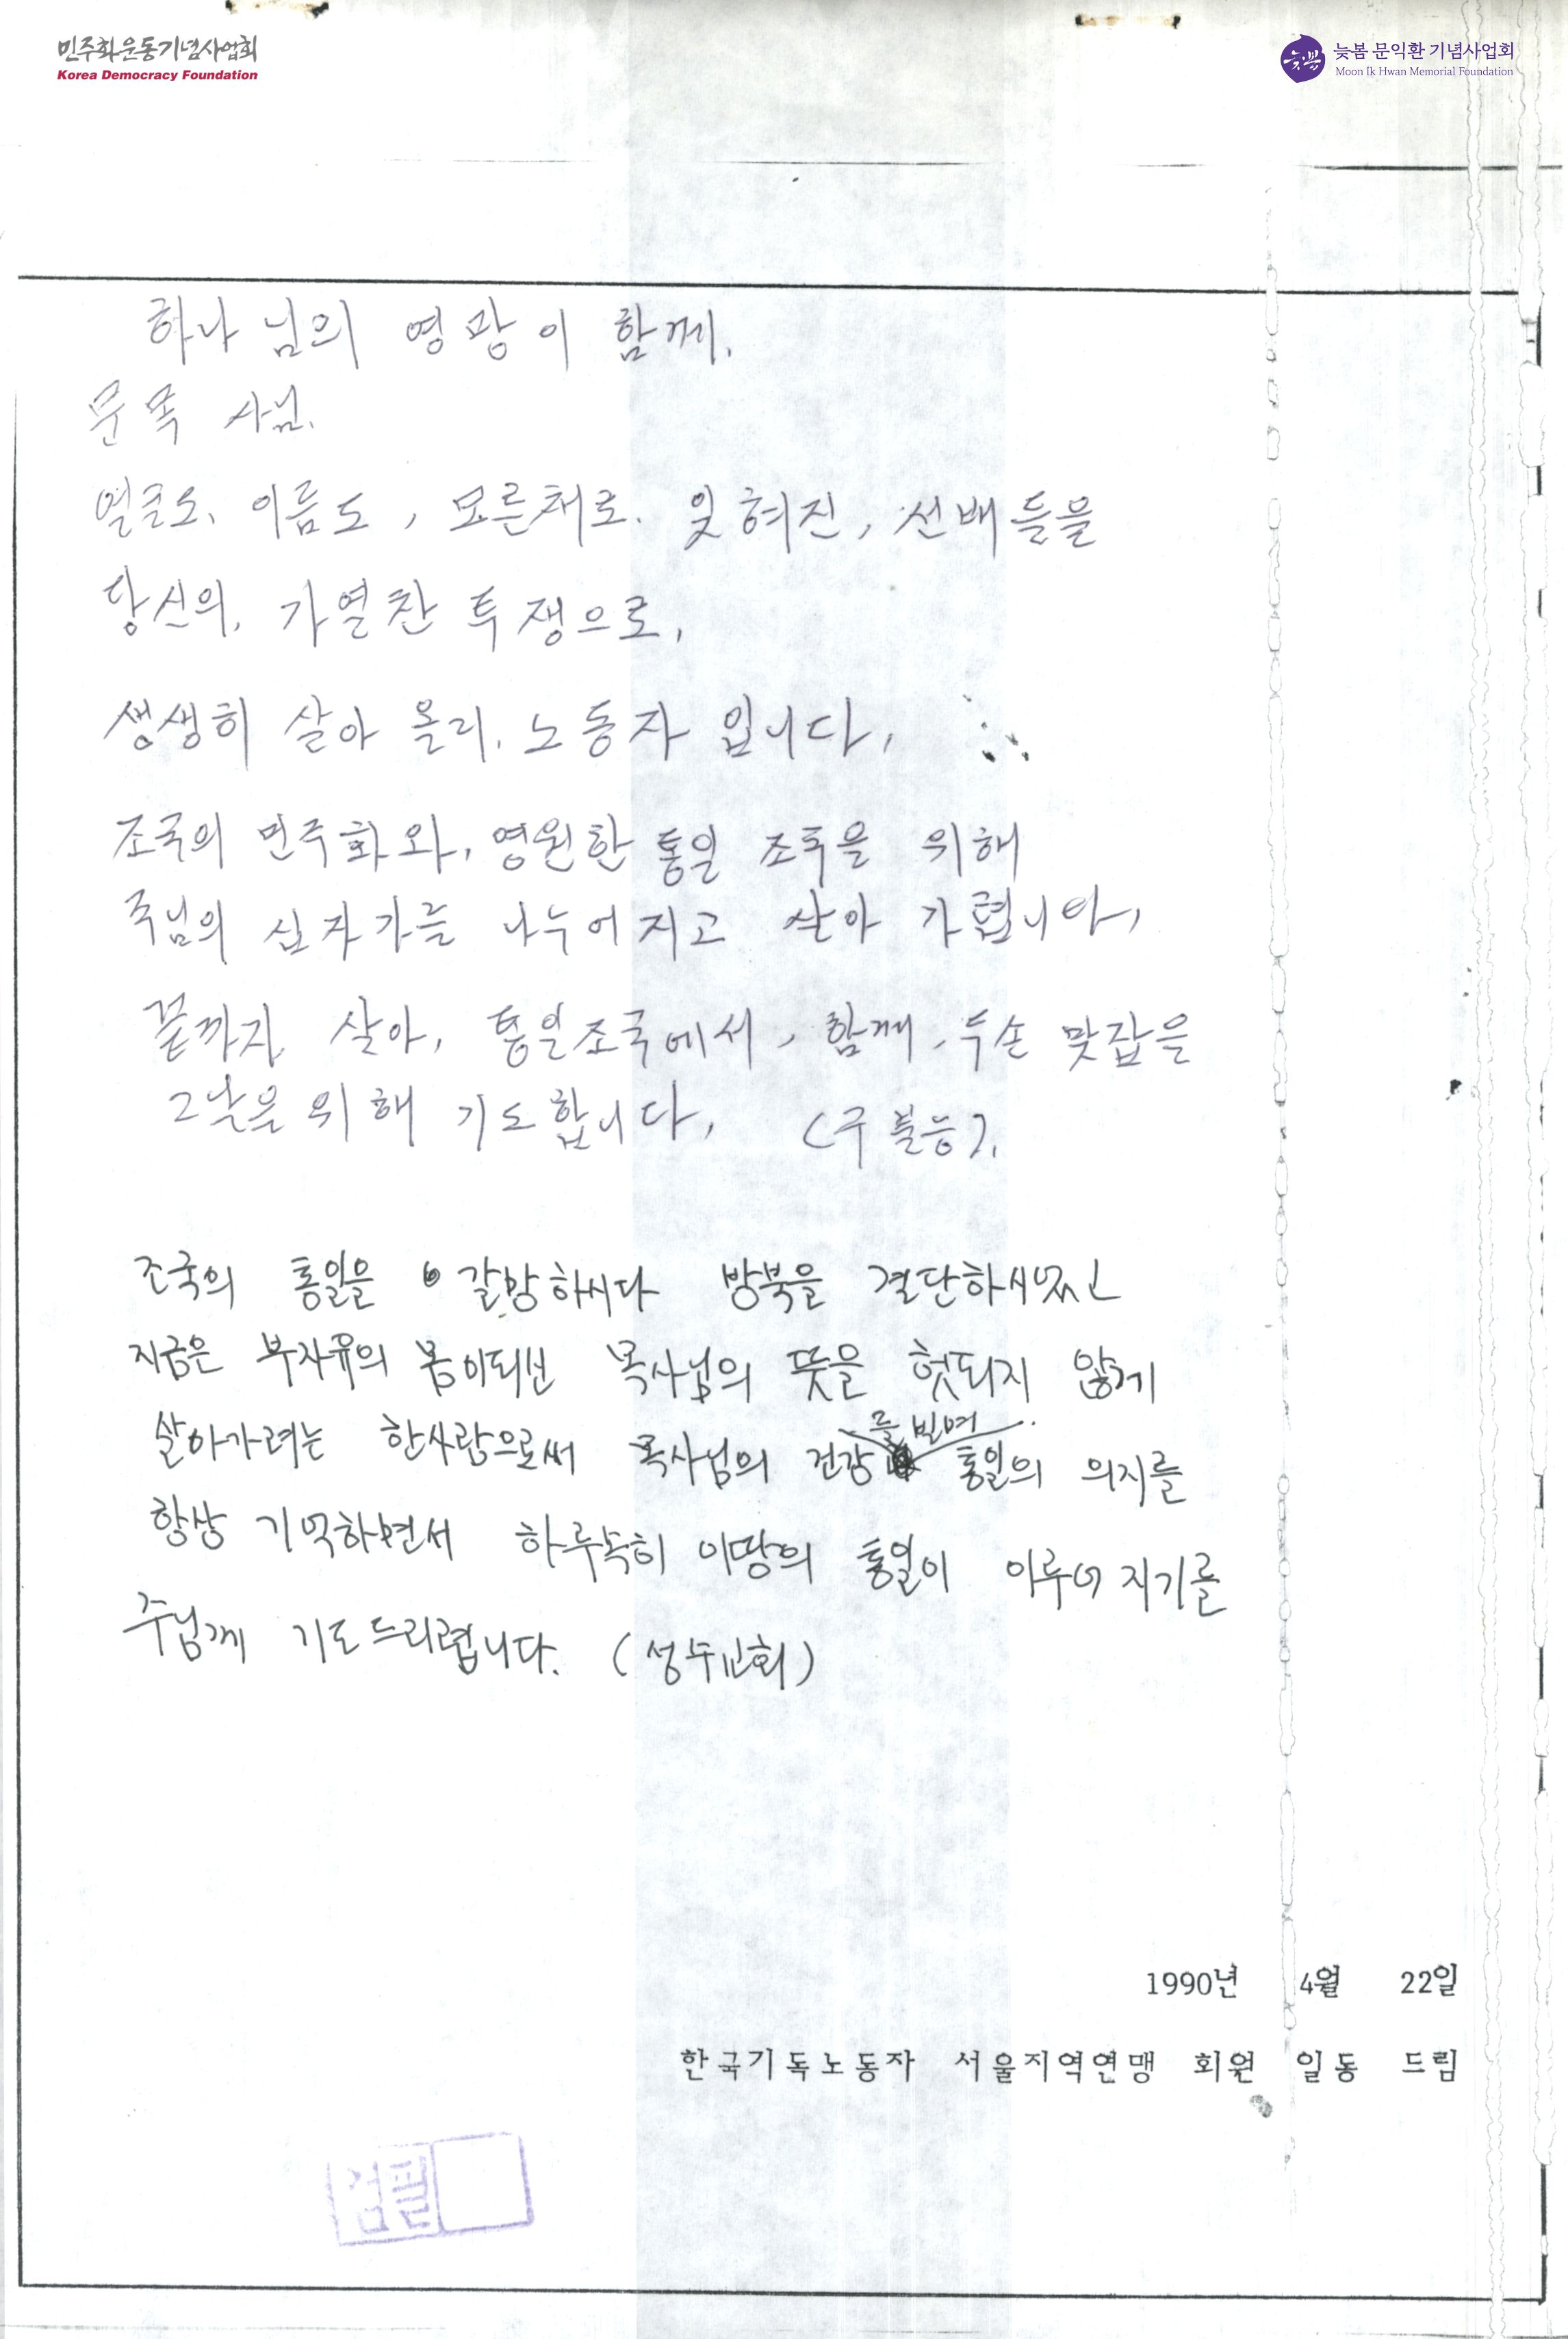 민주화운동기념사업회
Korea Democracy Foundation
늦봄
늦봄 문익환 기념사업회
Moon Ik Hwan Memorial Foundation
하나님의 영광이 함께.
문목사님.
얼굴도, 이름도, 모른채로. 잊혀진, 선배들을
당신의, 가열찬 투쟁으로,
생생히 살아 올리. 노동자 입니다,
조국의 민주화와, 영원한 통일 조국을 위해
주님의 십자가를 나누어지고 살아 가렵니다,
끝까지 살아, 통일조국에서, 함께, 두손 맞잡을
그날을 위해 기도합니다,
조국의 통일을 갈망하시다 방북을 결단하시었고
지금은 부자유의 몸이되신 목사님의 뜻을 헛되지 않게
살아가려는 한사람으로써 목사님의 건강를 빌며 통일의 의지를
항상 기억하면서 하루속히 이땅의 통일이 이루어지기를
주님께 기도드리렵니다. (성수교회)
1990년 4월 22일
한국기독노동자 서울지역연맹 회원 일동 드림
검필